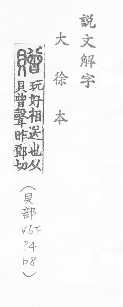 說文解字
大徐本
贈
玩好相送也从
貝曾聲昨鄧切
(貝部